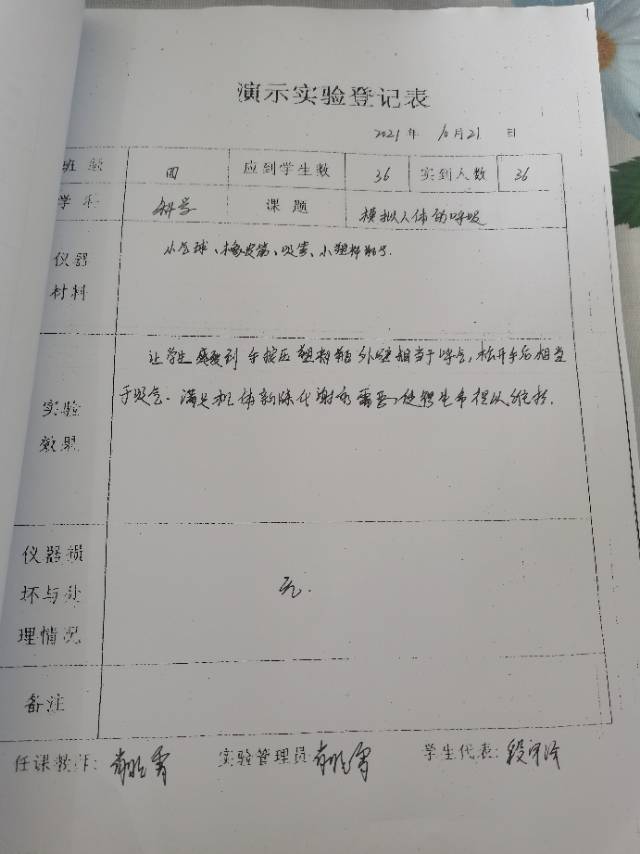 演示实验登记表
2021 年 10月21 日
班级 四 应到学生数 36 实到人数 36
学科 科学 课题 模拟人体的呼吸
仪器 小气球、橡皮筋、吸管、小塑料瓶子.
材料
让学生感受到手按压塑料瓶外壁相当于呼气,松开手后相当
于吸气.满足机体新陈代谢的需要,使生命得以维持.
实验
效果
仪器损
坏与处 无.
理情况
备注
任课教师: 实验管理员: 学生代表: 段